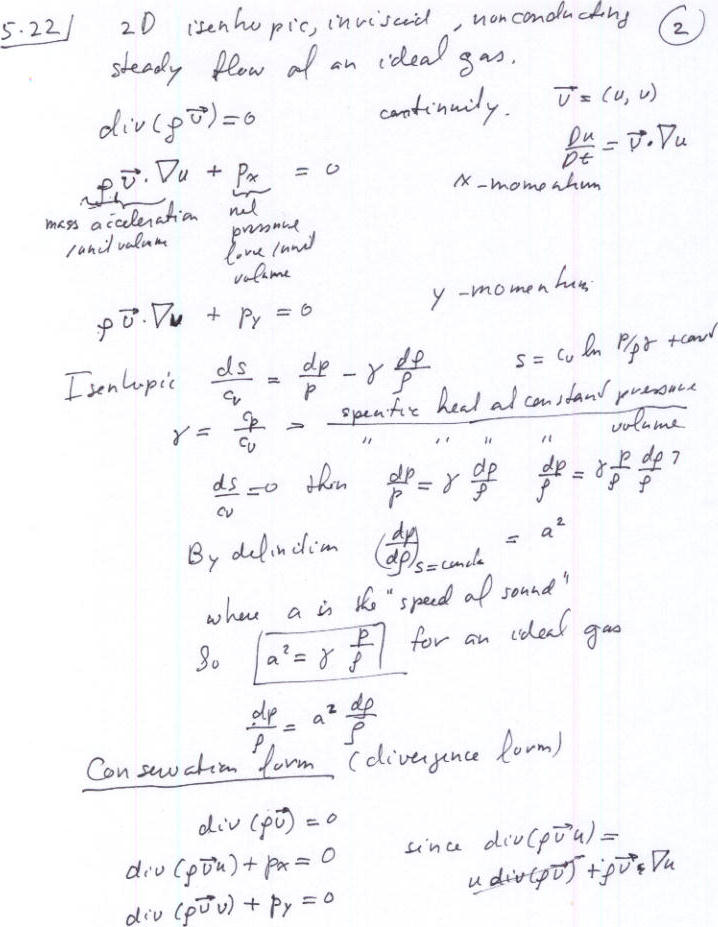 5.22/ 2D isentropic, inviscid, nonconducting (2)
steady flow of an ideal gas.
div(ρv⃗)=0 continuity. v⃗ = (u, v)
Du/Dt = v⃗·∇u
ρv⃗·∇u + px = 0 x-momentum
mass acceleration / unit volume
net pressure force / unit volume
ρv⃗·∇v + py = 0 y-momentum
Isentropic ds/cv = dp/p − γ dρ/ρ s = cv ln p/ργ + const
γ = cp/cv = specific heat at constant pressure
" " " " volume
ds/cv = 0 then dp/p = γ dρ/ρ dp/ρ = γ p/ρ dρ/ρ
By definition (dp/dρ)s=const = a²
where a is the "speed of sound"
So a² = γ p/ρ for an ideal gas
dp/ρ = a² dρ/ρ
Conservation form (divergence form)
div(ρv⃗) = 0
div(ρv⃗u) + px = 0 since div(ρv⃗u) =
u div(ρv⃗) + ρv⃗·∇u
div(ρv⃗v) + py = 0